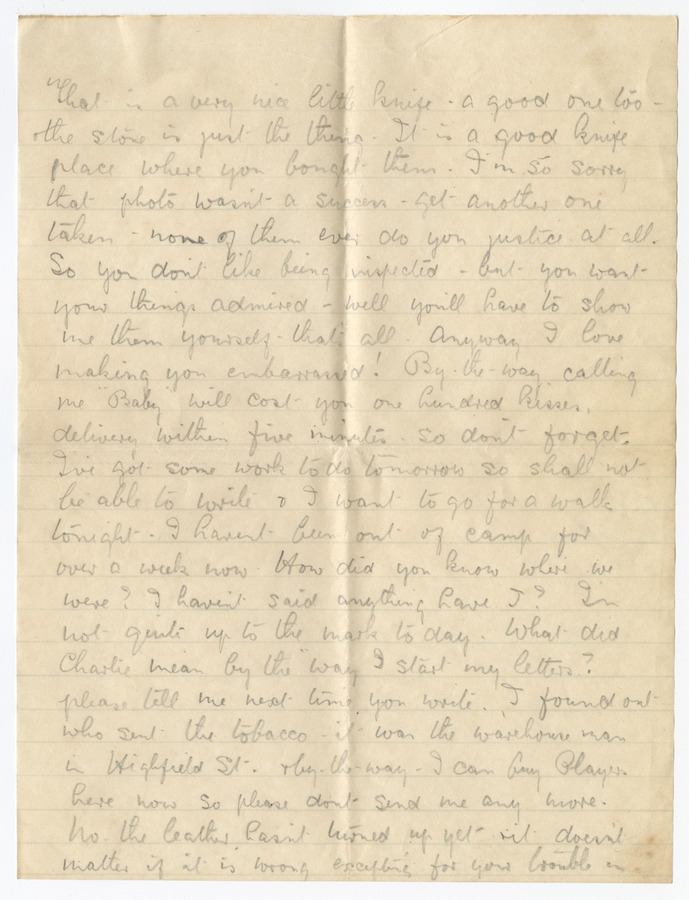 That is a very nice little knife - a good one too -
the stone is just the thing. It is a good knife
place where you bought them. I'm so sorry
that photo wasn't a success - get another one
taken - none of them ever do you justice at all.
So you don't like being inspected - but you want
your things admired - well you'll have to show
me them yourself - that's all. Anyway I love
making you embarrassed! By-the-way calling
me "Baby" will cost you one hundred kisses,
delivery within five minutes. So don't forget.
I've got some work to do tomorrow so shall not
be able to write & I want to go for a walk
tonight. I haven't been out of camp for
over a week now. How did you know where we
were? I haven't said anything have I? I'm
not quite up to the mark to day. What did
Charlie mean by the "way I start my letters?
please tell me next time you write. I found out
who sent the tobacco - it was the warehouse man
in Highfield St. & by-the-way - I can buy Players
here now so please don't send me any more.
No. the leather hasn't turned up yet & it doesn't
matter if it is wrong excepting for your trouble in